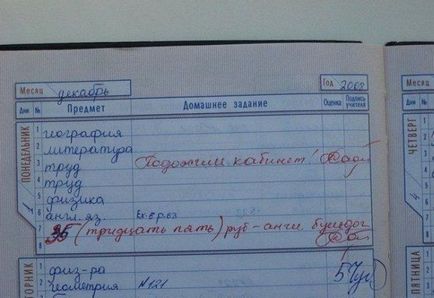 Месяц декабрь Год 2008
Дни № Предмет Домашнее задание Оценка Подпись учителя
ПОНЕДЕЛЬНИК 1
1 география
2 литература
3 труд Подожгли кабинет!
4 труд
5 физика
6 англ. яз. Ex 6 p 63
7 35 (тридцать пять) руб - англ. бульдог
8
ВТОРНИК
1 физ-ра
2 геометрия № 121 5
ЧЕТВЕРГ 4
1
2
3
4
5
6
7
8
ПЯТНИЦА
1
2